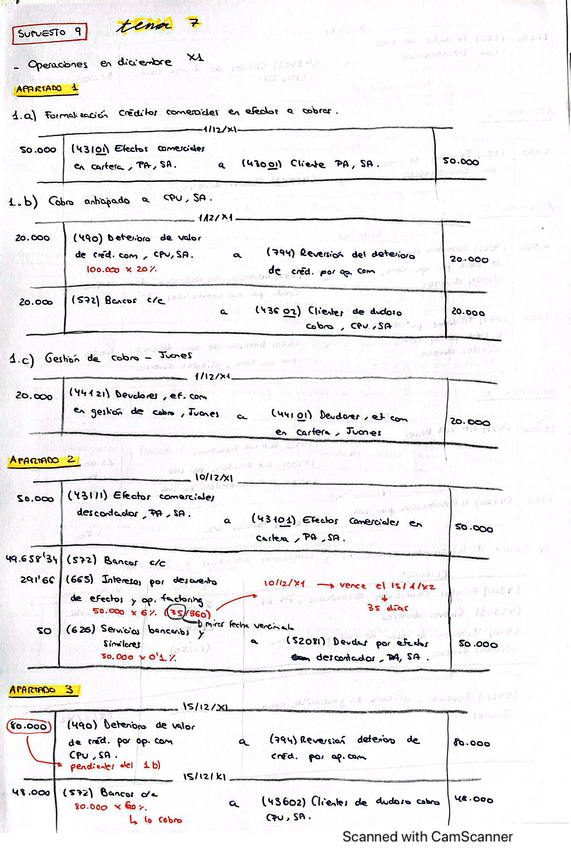 SUPUESTO 9 tema 7
- Operaciones en diciembre X1
APARTADO 1
1.a) Formalización créditos comerciales en efectos a cobrar.
1/12/X1
50.000 (43101) Efectos comerciales
en cartera, PA, SA. a (43001) Cliente PA, SA. 50.000
1.b) Cobro anticipado a CPU, SA.
1/12/X1
20.000 (490) Deterioro de valor
de créd. com, CPU, SA. a (794) Reversión del deterioro 20.000
100.000 x 20% de créd. por op. com
20.000 (572) Bancos c/c
a (43602) Clientes de dudoso 20.000
cobro, CPU, SA
1.c) Gestión de cobro - Juanes
1/12/X1
20.000 (44121) Deudores, ef. com
en gestión de cobro, Juanes a (44101) Deudores, ef com 20.000
en cartera, Juanes
APARTADO 2
10/12/X1
50.000 (43111) Efectos comerciales
descontados, PA, SA. a (43101) Efectos comerciales en 50.000
cartera, PA, SA.
49.658'34 (572) Bancos c/c
291'66 (665) Intereses por descuento 10/12/X1 → vence el 15/1/X2
de efectos y op. factoring ↓
50.000 x 6% (35/360) 35 días
↳ mirar fecha
50 (626) Servicios bancarios y a (52081) Deudas por efectos 50.000
similares descontados, PA, SA.
50.000 x 0'1%
APARTADO 3
15/12/X1
80.000 (490) Deterioro de valor
de créd. por op. com a (794) Reversión deterioro de 80.000
CPU, SA. créd. por op. com
pendientes del 1b)
15/12/X1
48.000 (572) Bancos c/c
80.000 x 60% a (43602) Clientes de dudoso cobro 48.000
↳ lo cobro CPU, SA.
Scanned with CamScanner